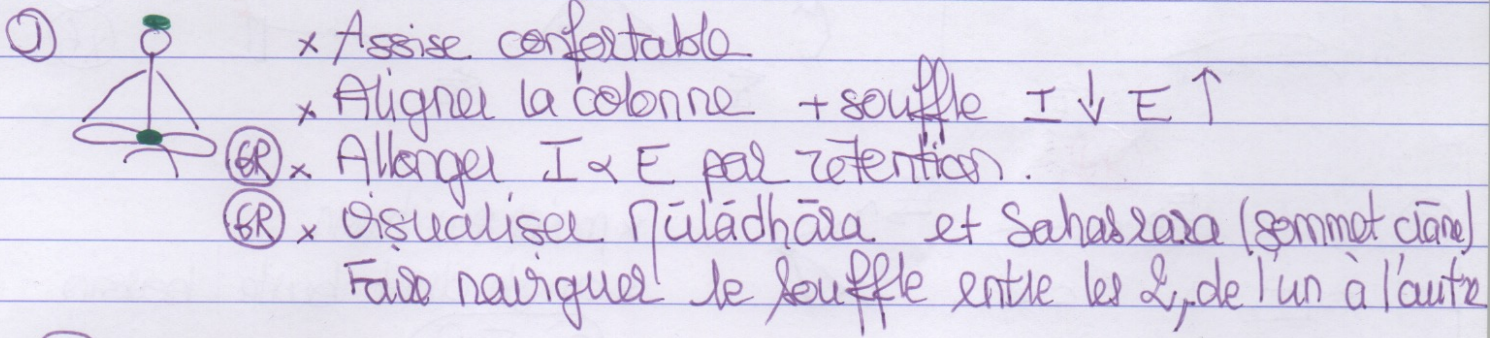 ① × Assise confortable
× Aligner la colonne + souffle I ↓ E ↑
6R × Allonger I & E par rétention.
6R × Visualiser Mūlādhāra et Sahasrara (sommet crâne)
Faire naviguer le souffle entre les 2, de l'un à l'autre